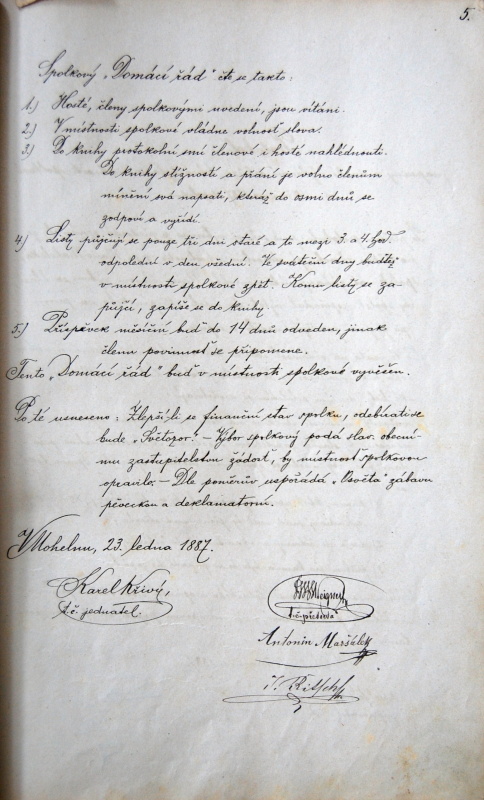 5.
Spolkový „Domácí řád“ čte se takto:
1.) Hosté, členy spolkovými uvedeni, jsou vítáni.
2.) V místnosti spolkové vládne volnosť slova.
3.) Do knihy protokolní smí členové i hosté nahlédnouti.
Do knihy stížností a přání je volno členům
mínění svá napsati, kteráž do osmi dnů se
zodpoví a vyřídí.
4.) Listy půjčují se pouze tři dni staré a to mezi 3. a 4. hod.
odpolední v den všední. Ve sváteční dny buďtež
v místnosti spolkové zpět. Komu listy se za-
půjčí, zapíše se do knihy.
5.) Příspěvek měsíční buď do 14 dnů odveden, jinak
členu povinnosť se připomene.
Tento „Domácí řád“ buď v místnosti spolkové vyvěšen.
Po té usneseno: Zlepší-li se finanční stav spolku, odebírati se
bude „Světozor“. – Výbor spolkový podá slav. obecní-
mu zastupitelstvu žádosť, by místnosť spolkovou
opravilo. – Dle poměrův uspořádá „Osvěta“ zábavu
pěveckou a deklamatorní.
V Mohelnu, 23. ledna 1887.
Karel Křivý,
t. č. jednatel.
t. č. předseda
Antonín Maršálek